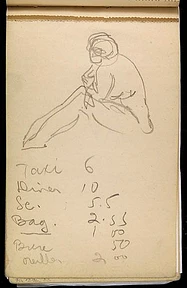 Taxi 6
Diner 10
Sc. 5.5
Bag. 2.55
1 00
50
2 00